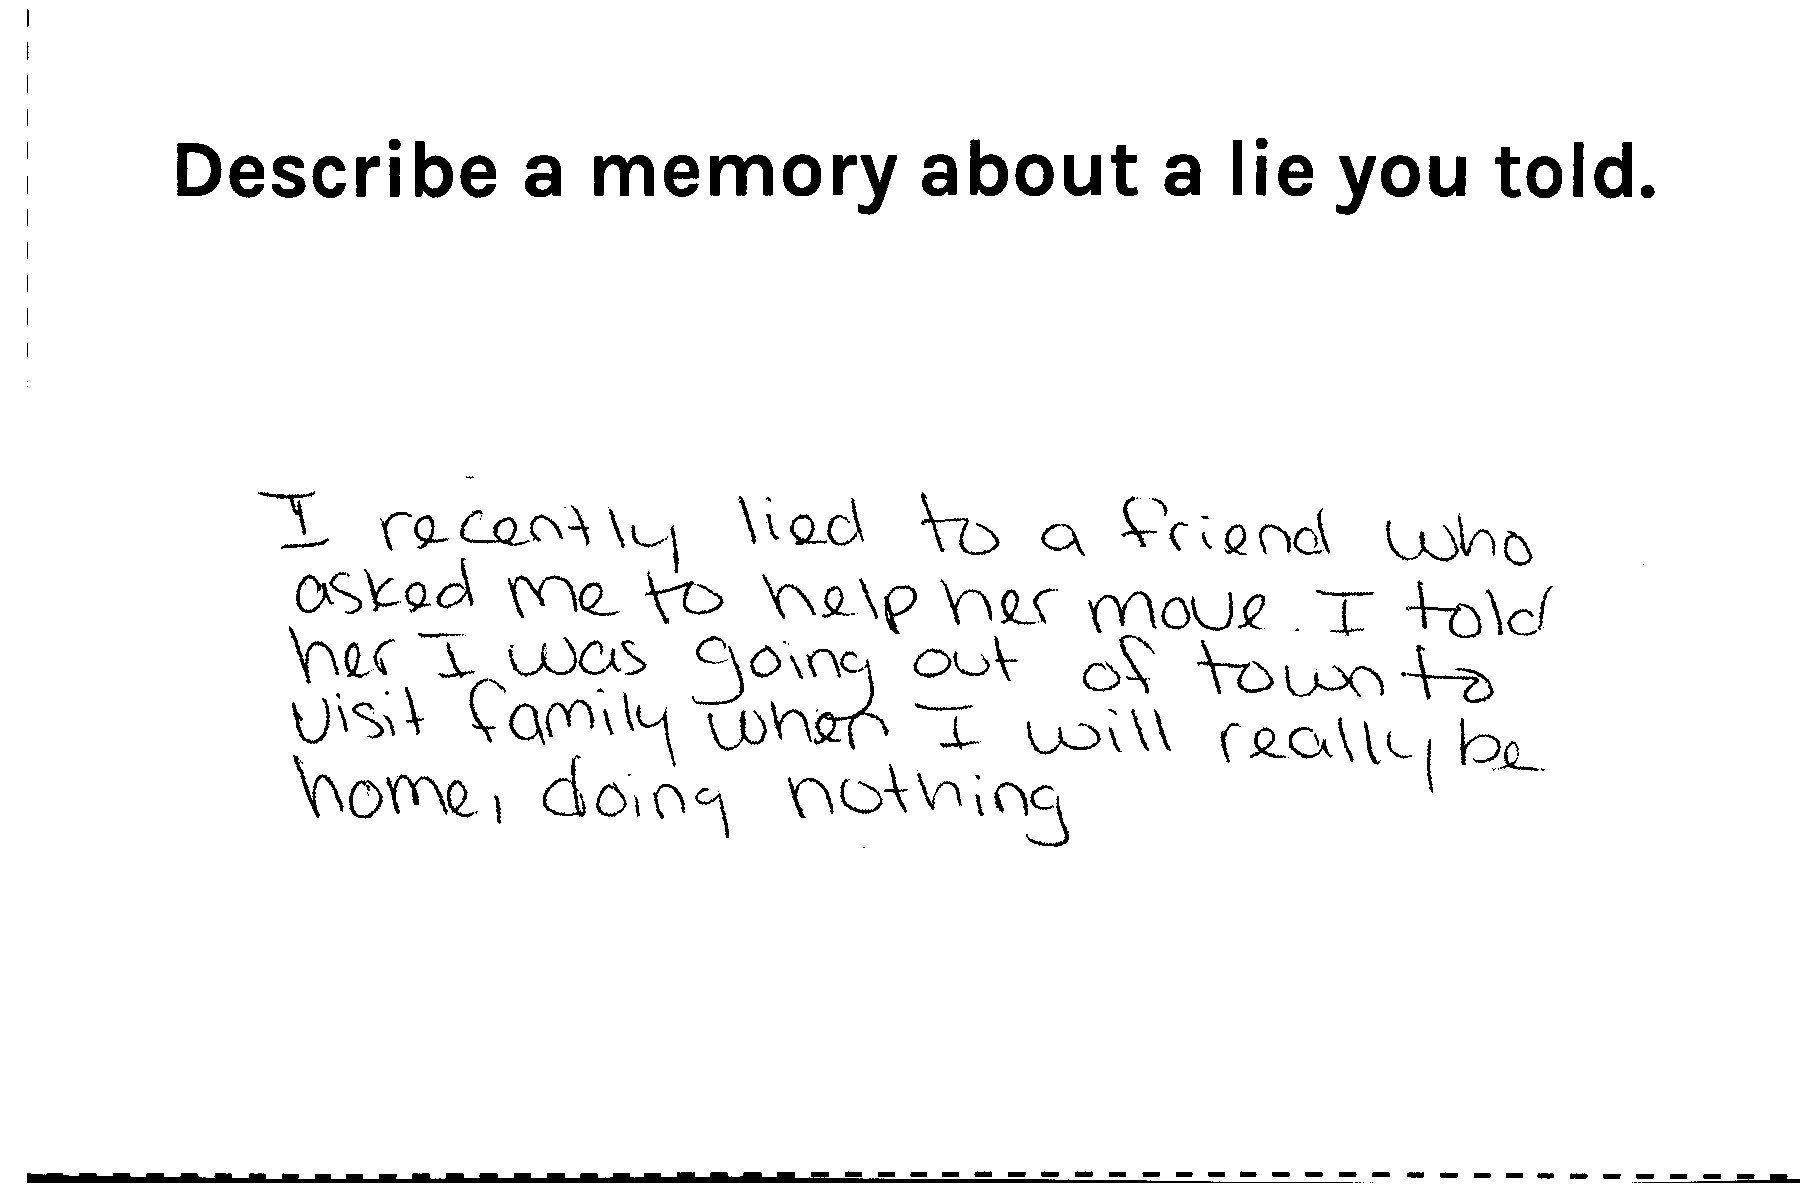 Describe a memory about a lie you told.
I recently lied to a friend who
asked me to help her move. I told
her I was going out of town to
visit family when I will really be
home, doing nothing